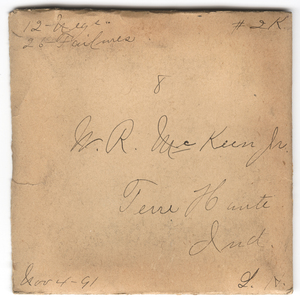 12-Negs # 2K
25-Failures
8
W. R. McKeen Jr.
Terre Haute
Ind.
Nov 4-91